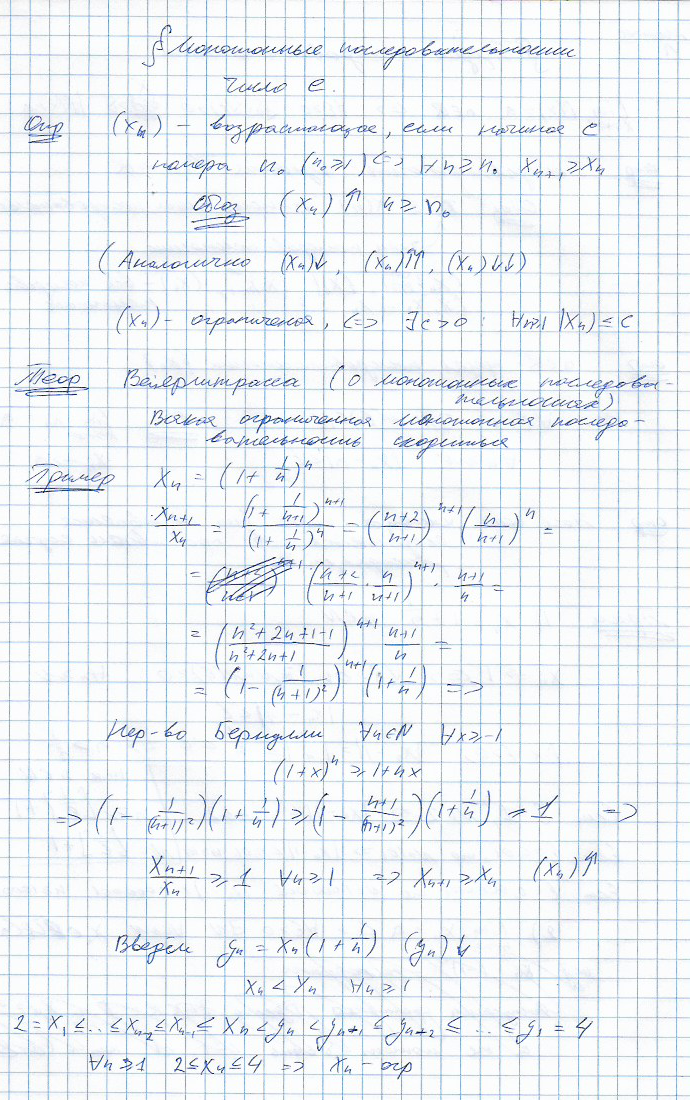 § Монотонные последовательности
Число e.
Опр (xₙ) – возрастающая, если начиная с
номера n₀ (n₀≥1) <=> ∀n≥n₀ xₙ₊₁≥xₙ
Обоз (xₙ)↑ n≥n₀
(Аналогично (xₙ)↓, (xₙ)↑↑, (xₙ)↓↓)
(xₙ) – ограниченая, <=> ∃c>0 : ∀n≥1 |xₙ|≤c
Теор Вейерштрасса (о монотонных последова-
тельностях)
Всякая ограниченная монотонная последо-
вательность сходится
Пример xₙ = (1 + 1/n)ⁿ
xₙ₊₁/xₙ = (1 + 1/(n+1))ⁿ⁺¹/(1 + 1/n)ⁿ = ((n+2)/(n+1))ⁿ⁺¹ (n/(n+1))ⁿ =
= ((n+2)/(n+1) · n/(n+1))ⁿ⁺¹ · (n+1)/n =
= ((n²+2n+1-1)/(n²+2n+1))ⁿ⁺¹ (n+1)/n =
= (1 - 1/(n+1)²)ⁿ⁺¹ (1+1/n) =>
Нер-во Бернулли ∀n∈N ∀x≥-1
(1+x)ⁿ ≥ 1+nx
=> (1 - 1/(n+1)²)(1+1/n) ≥ (1 - (n+1)/(n+1)²)(1+1/n) = 1 =>
xₙ₊₁/xₙ ≥ 1 ∀n≥1 => xₙ₊₁≥xₙ (xₙ)↑
Введём yₙ = xₙ(1+1/n) (yₙ)↓
xₙ < yₙ ∀n≥1
2 = x₁ ≤ … ≤ xₙ₋₂ ≤ xₙ₋₁ ≤ xₙ < yₙ < yₙ₊₁ ≤ yₙ₊₂ ≤ … ≤ y₁ = 4
∀n≥1 2≤xₙ≤4 => xₙ – огр